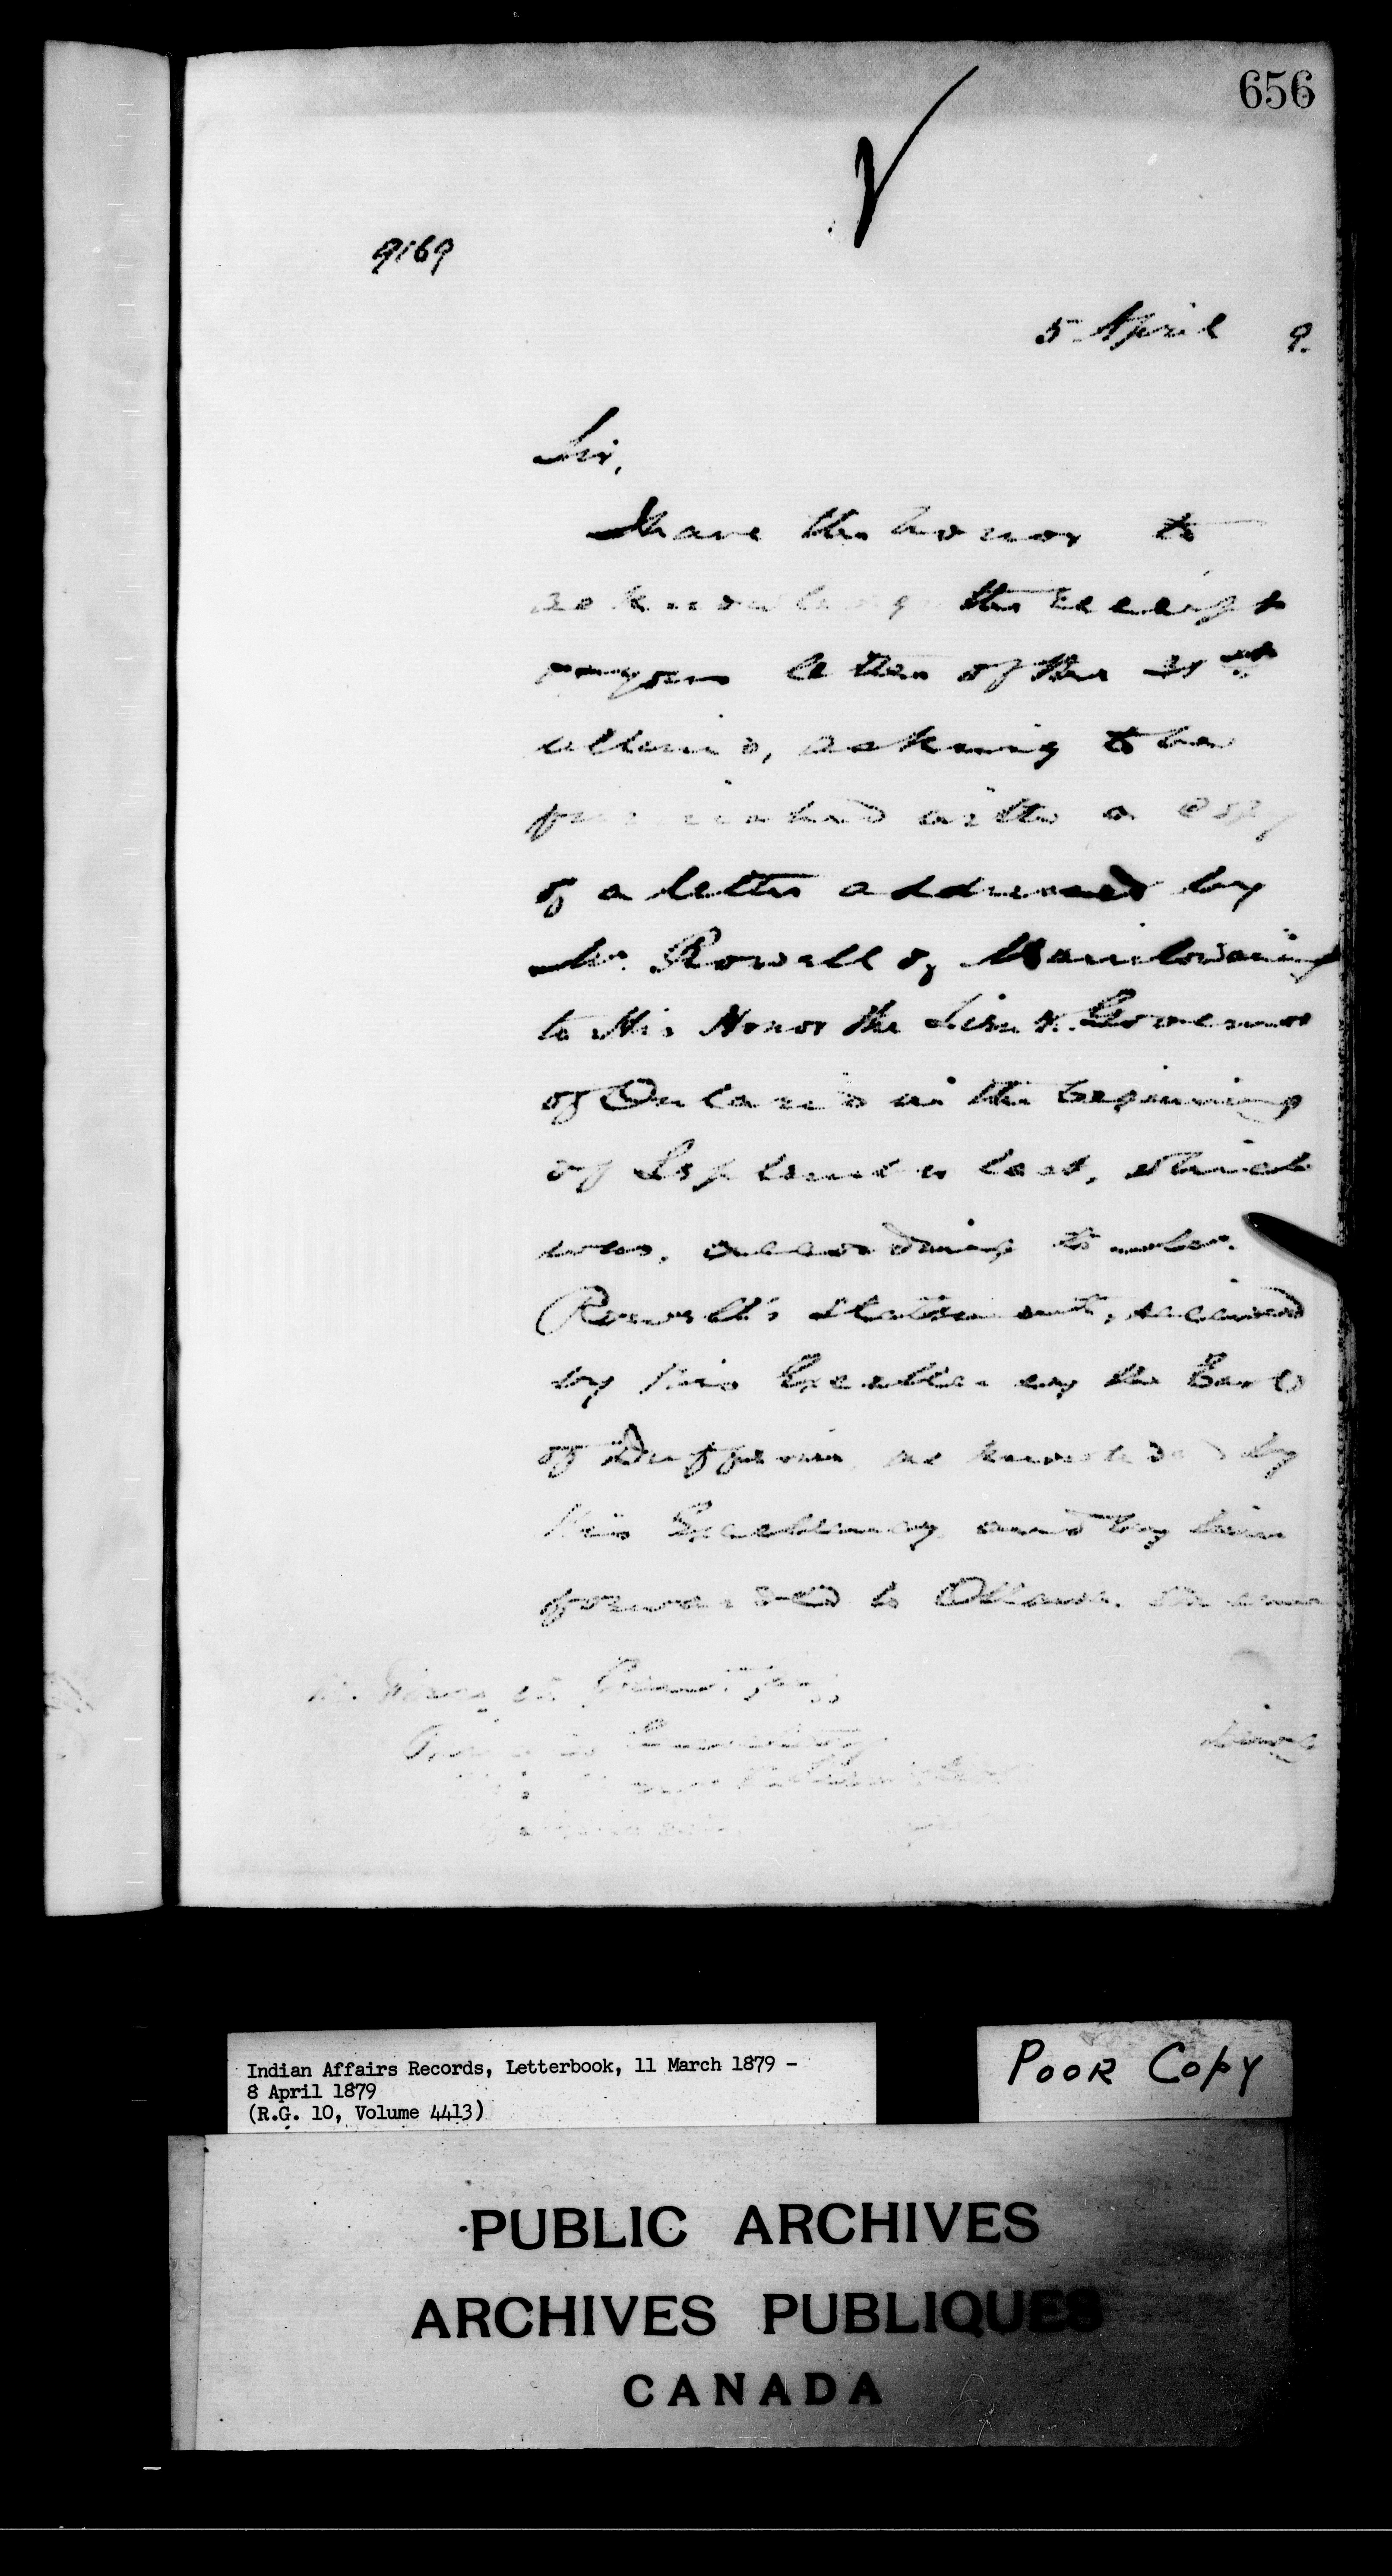 656
9169
5 April 9.
Sir,
I have the honor to
acknowledge the receipt
your letter of the
ultimo, asking to be
furnished with a copy
of a letter addressed by
Mr. Rowell of Manitowaning
to His Honor the Lieut. Governor
of Ontario in the beginning
of September last, which
was, according to Mr.
Rowell's statement, received
by His Excellency the Earl
of Dufferin, acknowledged by
His Excellency and by him
forwarded to Ottawa.
being
Indian Affairs Records, Letterbook, 11 March 1879 -
8 April 1879
(R.G. 10, Volume 4413)
POOR COPY
PUBLIC ARCHIVES
ARCHIVES PUBLIQUES
CANADA